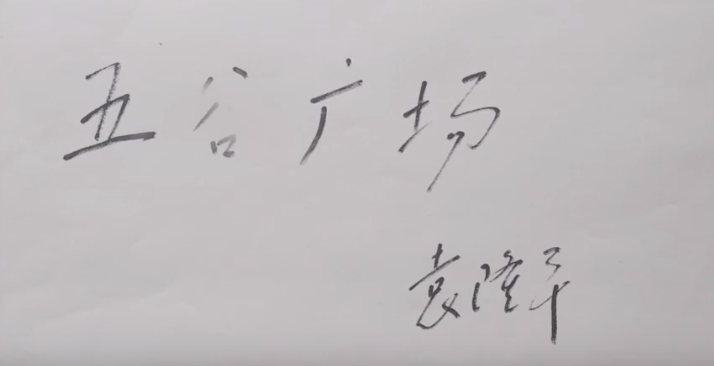 五谷广场
袁隆平